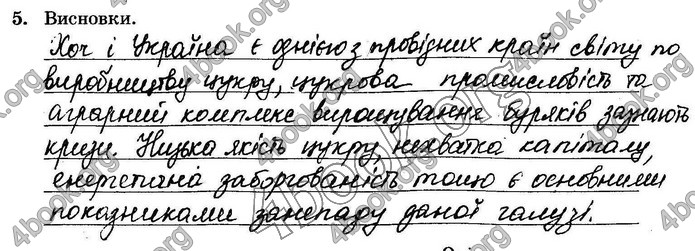 5. Висновки.
Хоч і Україна є однією з провідних країн світу по
виробництву цукру, цукрова промисловість та
аграрний комплекс вирощування буряків зазнають
кризи. Низька якість цукру, нехватка капіталу,
енергетична заборгованість тощо є основними
показниками занепаду даної галузі.
4book.org